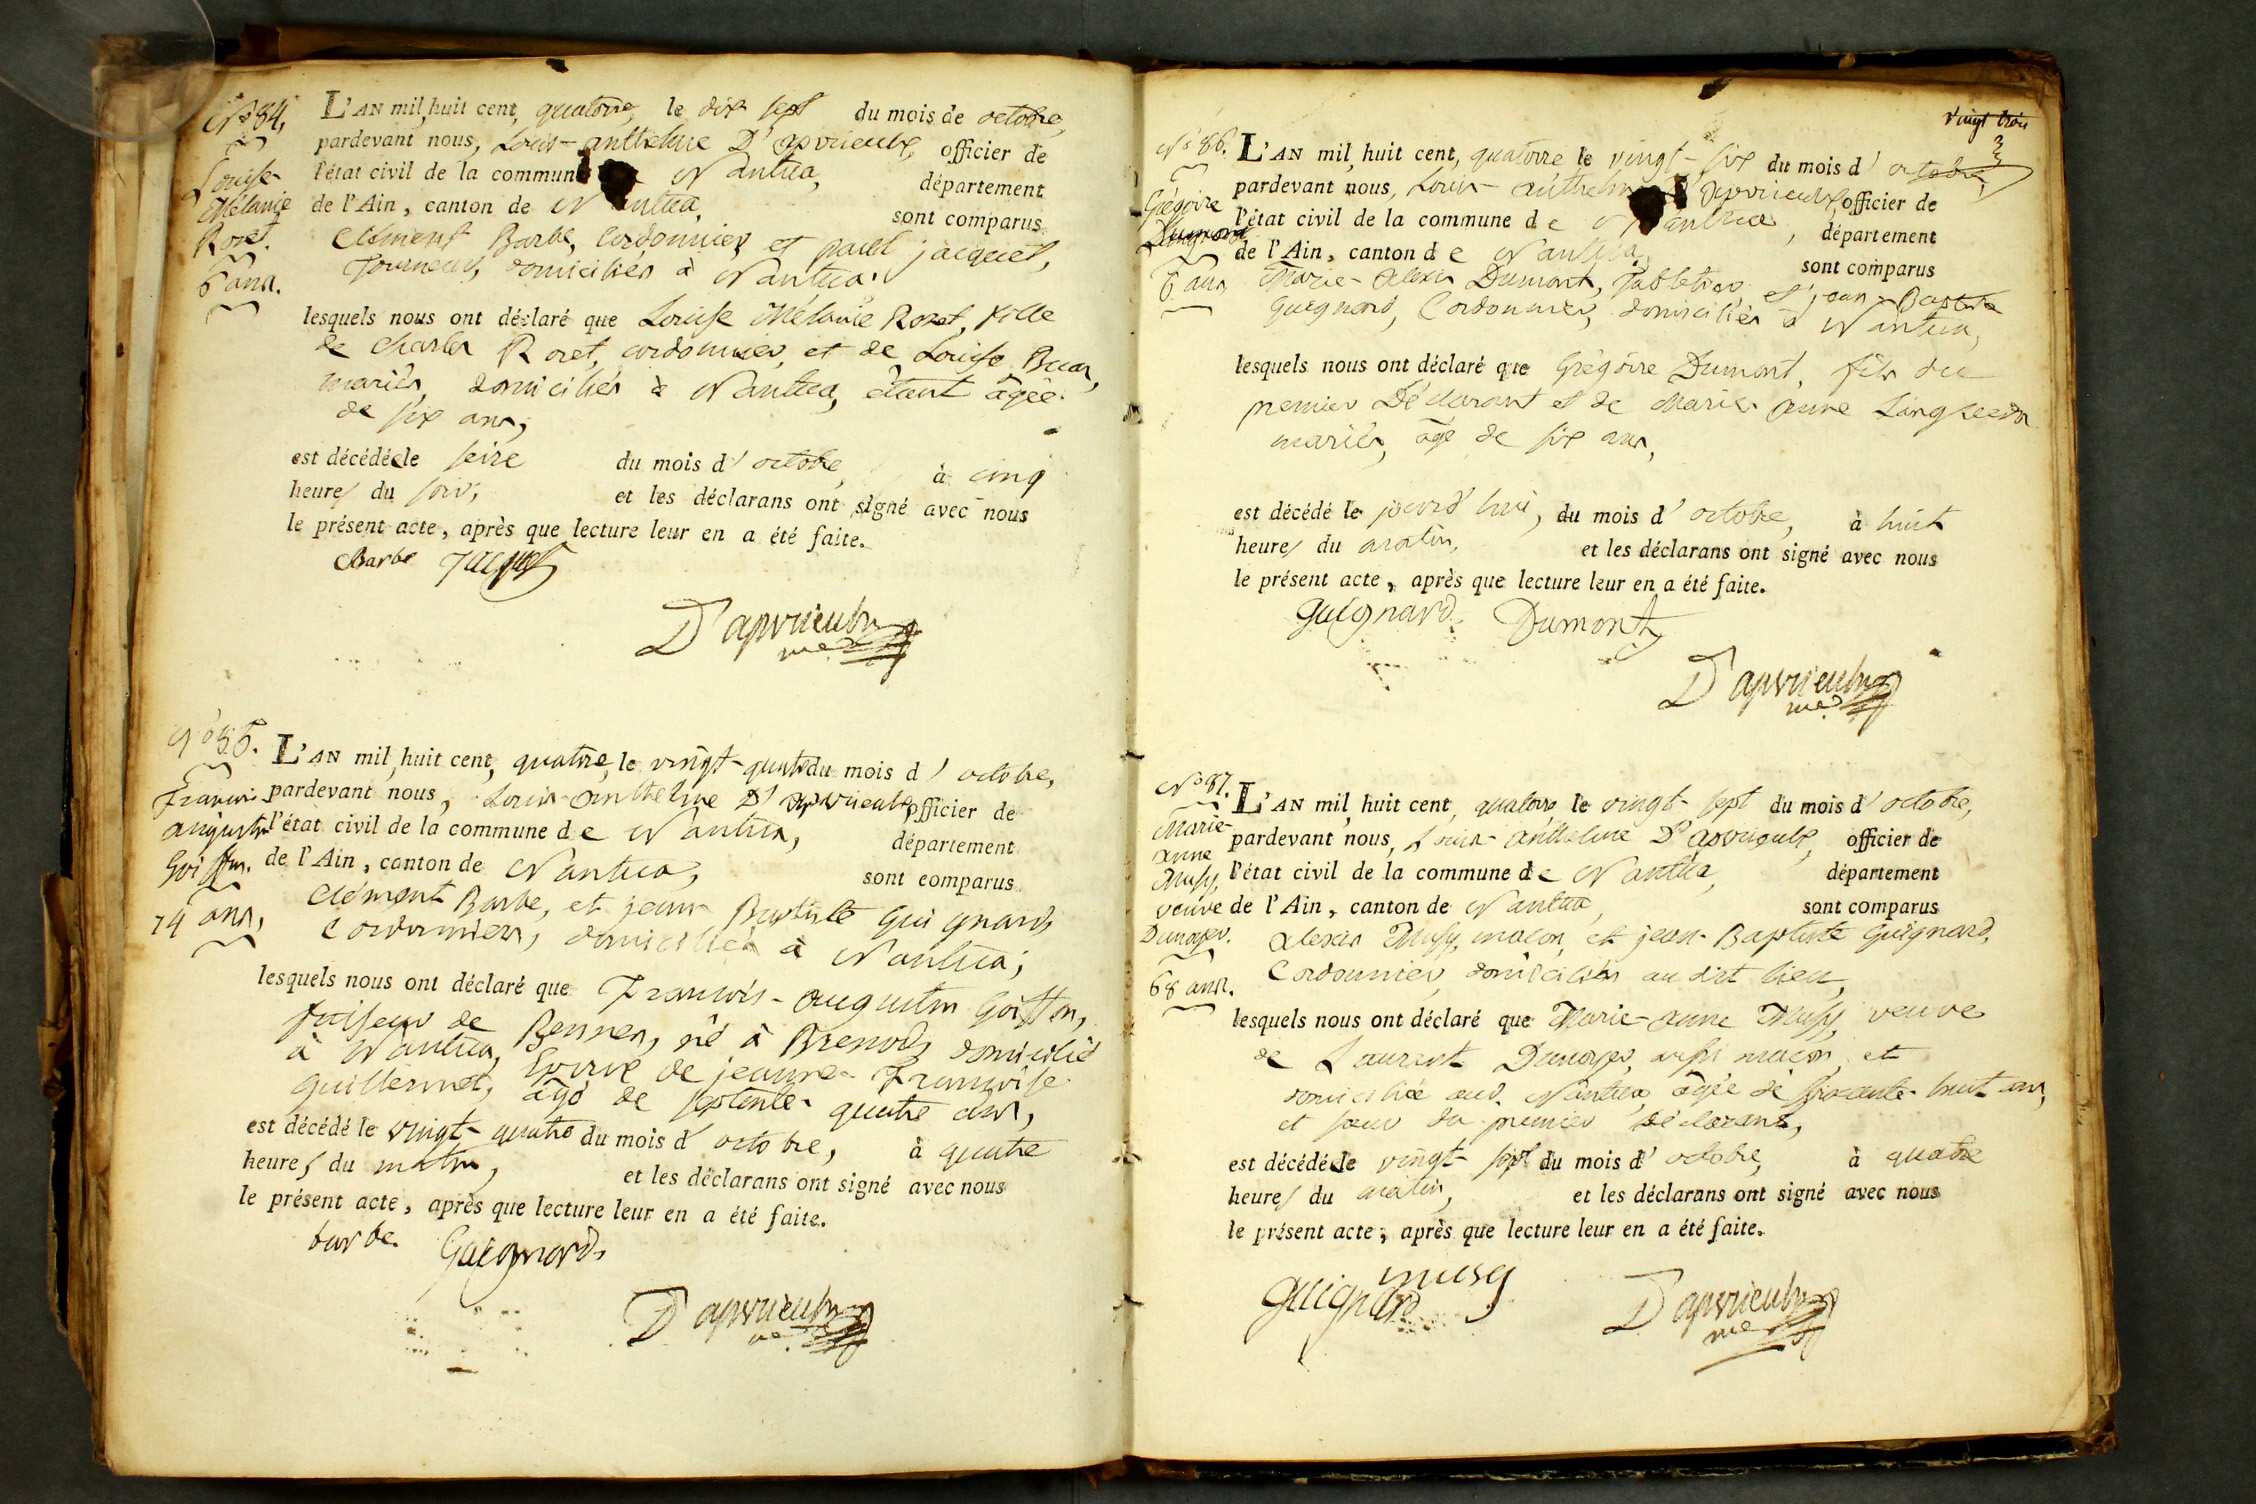 N.º 84,
Louise
Mélanie
Rozet.
6 ans.
L'AN mil huit cent, quatorze, le dix sept du mois de octobre,
pardevant nous, Louis-anthelme D'apvrieulx, officier de
l'état civil de la commune Nantua, département
de l'Ain, canton de Nantua. sont comparus
Clément Barbe, Cordonnier, et paul jacquet,
Tourneur, domiciliés à Nantua.
lesquels nous ont déclaré que Louise Mélanie Rozet, fille
de Charles Rozet, cordonnier, et de Louise
mariés, domiciliés à Nantua, étant âgée
de six ans,
est décédée le seize du mois d'octobre, à cinq
heures du soir, et les déclarans ont signé avec nous
le présent acte, après que lecture leur en a été faite.
Barbe Jacquet
D'apvrieulx
N.º 85.
françois
augustin
Goiffon.
74 ans,
L'AN mil huit cent, quatorze, le vingt-quatre du mois d'octobre,
pardevant nous, Louis-anthelme D'apvrieulx officier de
l'état civil de la commune de Nantua, département
de l'Ain, canton de Nantua, sont comparus
Clément Barbe, et jean Baptiste Guignard,
Cordonniers, domiciliés à Nantua;
lesquels nous ont déclaré que François-augustin Goiffon,
faiseur de Bennes, né à Brenod, domicilié
à Nantua, de jeanne-Françoise
Guillermet, âgé de septente-quatre ans,
est décédé le vingt-quatre du mois d'octobre, à quatre
heures du matin, et les déclarans ont signé avec nous
le présent acte, après que lecture leur en a été faite.
barbe Guignard,
D'apvrieulx
vingt trois
N.º 86.
Grégoire
Dumont
6 ans
L'AN mil huit cent, quatorze le vingt-six du mois d'octobre,
pardevant nous, Louis-anthelme D'apvrieulx, officier de
l'état civil de la commune de Nantua, département
de l'Ain, canton de Nantua, sont comparus
Marie-alexis Dumont, Tabletier, et jean-Baptiste
Guignard, Cordonnier, domiciliés à Nantua,
lesquels nous ont déclaré que Grégoire Dumont, fils du
premier Déclarant et de Marie anne
mariés, âgé de six ans,
est décédé le jourd'hui, du mois d'octobre, à huit
heures du matin, et les déclarans ont signé avec nous
le présent acte, après que lecture leur en a été faite.
Guignard Dumont
D'apvrieulx
N.º 87.
Marie-
anne
Musy,
veuve
Dunoyer.
68 ans.
L'AN mil huit cent, quatorze le vingt-sept du mois d'octobre,
pardevant nous, Louis-anthelme D'apvrieulx, officier de
l'état civil de la commune de Nantua, département
de l'Ain, canton de Nantua, sont comparus
alexis Musy, maçon, et jean-Baptiste Guignard,
Cordonnier, domiciliés au dit lieu,
lesquels nous ont déclaré que Marie-anne Musy, veuve
de Laurent Dunoyer, aussi maçon, et
domiciliée aud. Nantua, âgée de soixante-huit ans,
et sœur du premier déclarant,
est décédée le vingt-sept du mois d'octobre, à quatre
heures du matin, et les déclarans ont signé avec nous
le présent acte, après que lecture leur en a été faite.
musy
Guignard D'apvrieulx